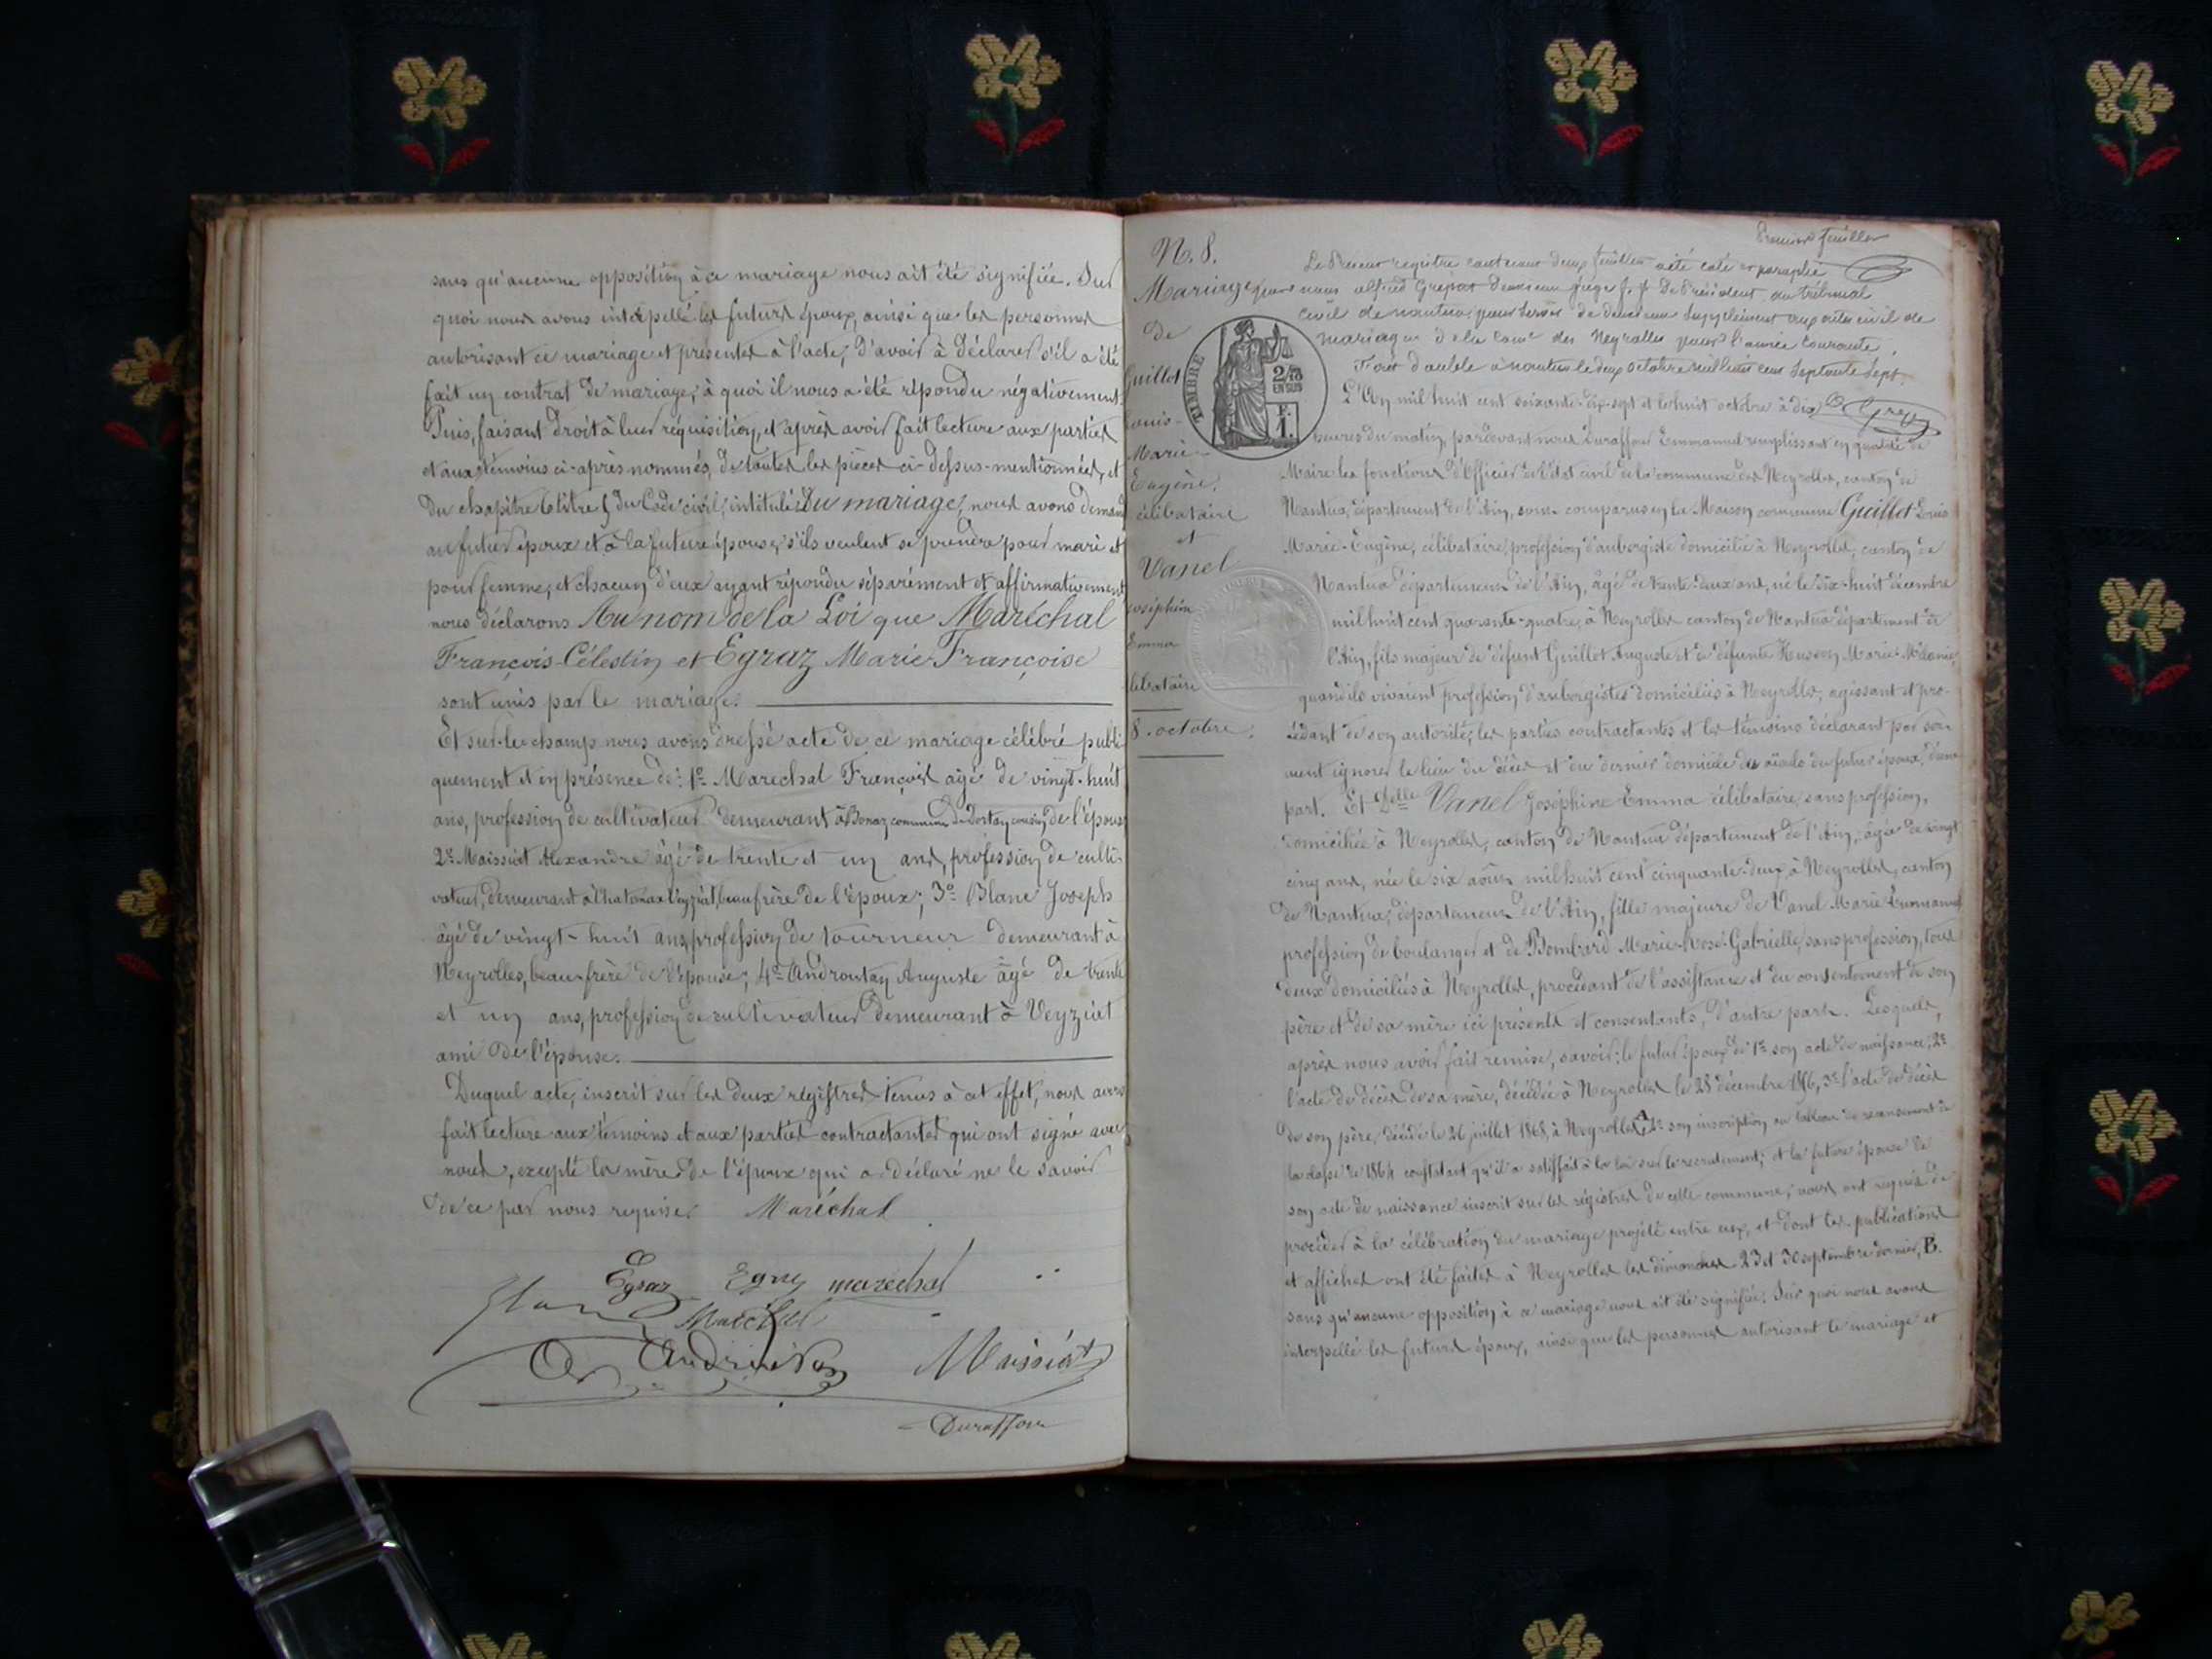 sans qu'aucune opposition à ce mariage nous ait été signifiée. Sur
quoi nous avons interpellé les futurs époux, ainsi que les personnes
autorisant ce mariage et présentes à l'acte, d'avoir à déclarer s'il a été
fait un contrat de mariage, à quoi il nous a été répondu négativement.
Puis, faisant droit à leur réquisition, et après avoir fait lecture aux parties
et aux témoins ci-après nommés, de toutes les pièces ci-dessus-mentionnées, et
du chapitre 6 titre 5 du Code civil, intitulé: Du mariage, nous avons demandé
au futur époux et à la future épouse, s'ils veulent se prendre pour mari et
pour femme, et chacun d'eux ayant répondu séparément et affirmativement
nous déclarons Au nom de la Loi que Maréchal
François-Célestin et Egraz Marie-Françoise
sont unis par le mariage.
Et sur-le-champ nous avons dressé acte de ce mariage célébré publi-
quement et en présence de: 1º Marechal François âgé de vingt-huit
ans, profession de cultivateur demeurant à Bonaz commune de Dortan cousin de l'époux
2º Maissiat Alexandre âgé de trente et un ans, profession de culti-
vateur, demeurant à Chatonax Veyziat, beau frère de l'époux; 3º Blanc Joseph
âgé de vingt-huit ans, profession de tourneur demeurant à
Neyrolles, beau-frère de l'épouse; 4º Androutan Auguste âgé de trente
et un ans, profession de cultivateur demeurant à Veyziat
ami de l'épouse.
Duquel acte, inscrit sur les deux régistres tenus à cet effet, nous avons
fait lecture aux témoins et aux parties contractantes qui ont signé avec
nous, excepté la mère de l'époux qui a déclaré ne le savoir
de ce par nous requise. Maréchal
Egraz Egraz marechal
Maréchal
Maissiat
Duraffour
Nº. 8.
Mariage
De
Guillet
Louis-
Marie-
Eugène.
célibataire
et
Vanel
Joséphine
Emma
célibataire
8. octobre.
TIMBRE
2/10
EN SUS
F.
1.
Premier feuillet
Le Présent registre contenant deux feuillets a été coté et paraphé
par nous alfred Grépat Deuxieme juge f. f. de Président au tribunal
civil de nantua, pour servir de deuxieme Supplément aux actes civil de
mariages de la Comne des Neyrolles pour l'année Courante.
Fait double à nantua le deux octobre mil huit cent Septante Sept.
L'An mil huit cent soixante-dix-sept et le huit octobre à dix
heures du matin, pardevant nous Duraffour Emmanuel remplissant en qualité de
Maire les fonctions d'Officier de l'état civil de la commune des Neyrolles, canton de
Nantua, département de l'Ain, sont comparus en la Maison commune Guillet Louis
Marie-Eugène, célibataire, profession d'aubergiste domicilié à Neyrolles, canton de
Nantua département de l'Ain, âgé de trente-deux ans, né le dix-huit décembre
mil huit cent quarante-quatre, à Neyrolles canton de Nantua département de
l'Ain, fils majeur de défunt Guillet Auguste et de défunte Husson Marie-Mélanie,
quand ils vivaient profession d'aubergistes domiciliés à Neyrolles, agissant et pro-
cédant de son autorité, les parties contractantes et les témoins déclarant par ser-
ment ignorer le lieu du décès et du dernier domicile des aïeuls du futur époux, d'une
part. Et Delle Vanel Joséphine Emma célibataire, sans profession,
domiciliée à Neyrolles, canton de Nantua département de l'Ain, âgée de vingt
cinq ans, née le six août mil huit cent cinquante-deux à Neyrolles, canton
de Nantua, département de l'Ain, fille majeure de Vanel Marie Emmanuel
profession de boulanger et de Bombard Marie-Rose-Gabrielle, sans profession, tous
deux domiciliés à Neyrolles, procédant de l'assistance et du consentement de son
père et de sa mère ici présents et consentants, d'autre part. Lesquels,
après nous avoir fait remise, savoir: le futur époux de 1º son acte de naissance; 2º
l'acte de décès de sa mère, décédée à Neyrolles le 28 décembre 1856, 3º l'acte de décès
de son père, décédé le 26 juillet 1868, à Neyrolles A 4º son inscription au tableau de recensement de
la classe de 1864 constatant qu'il a satisfait à la loi sur le recrutement; et la future épouse de
son acte de naissance inscrit sur les régistres de cette commune, nous ont requis de
procéder à la célébration du mariage projeté entre eux, et dont les publications
et affiches ont été faites à Neyrolles les dimanches 23 et 30 septembre dernier, B.
sans qu'aucune opposition à ce mariage nous ait été signifiée. Sur quoi nous avons
interpellé les futurs époux, ainsi que les personnes autorisant le mariage et